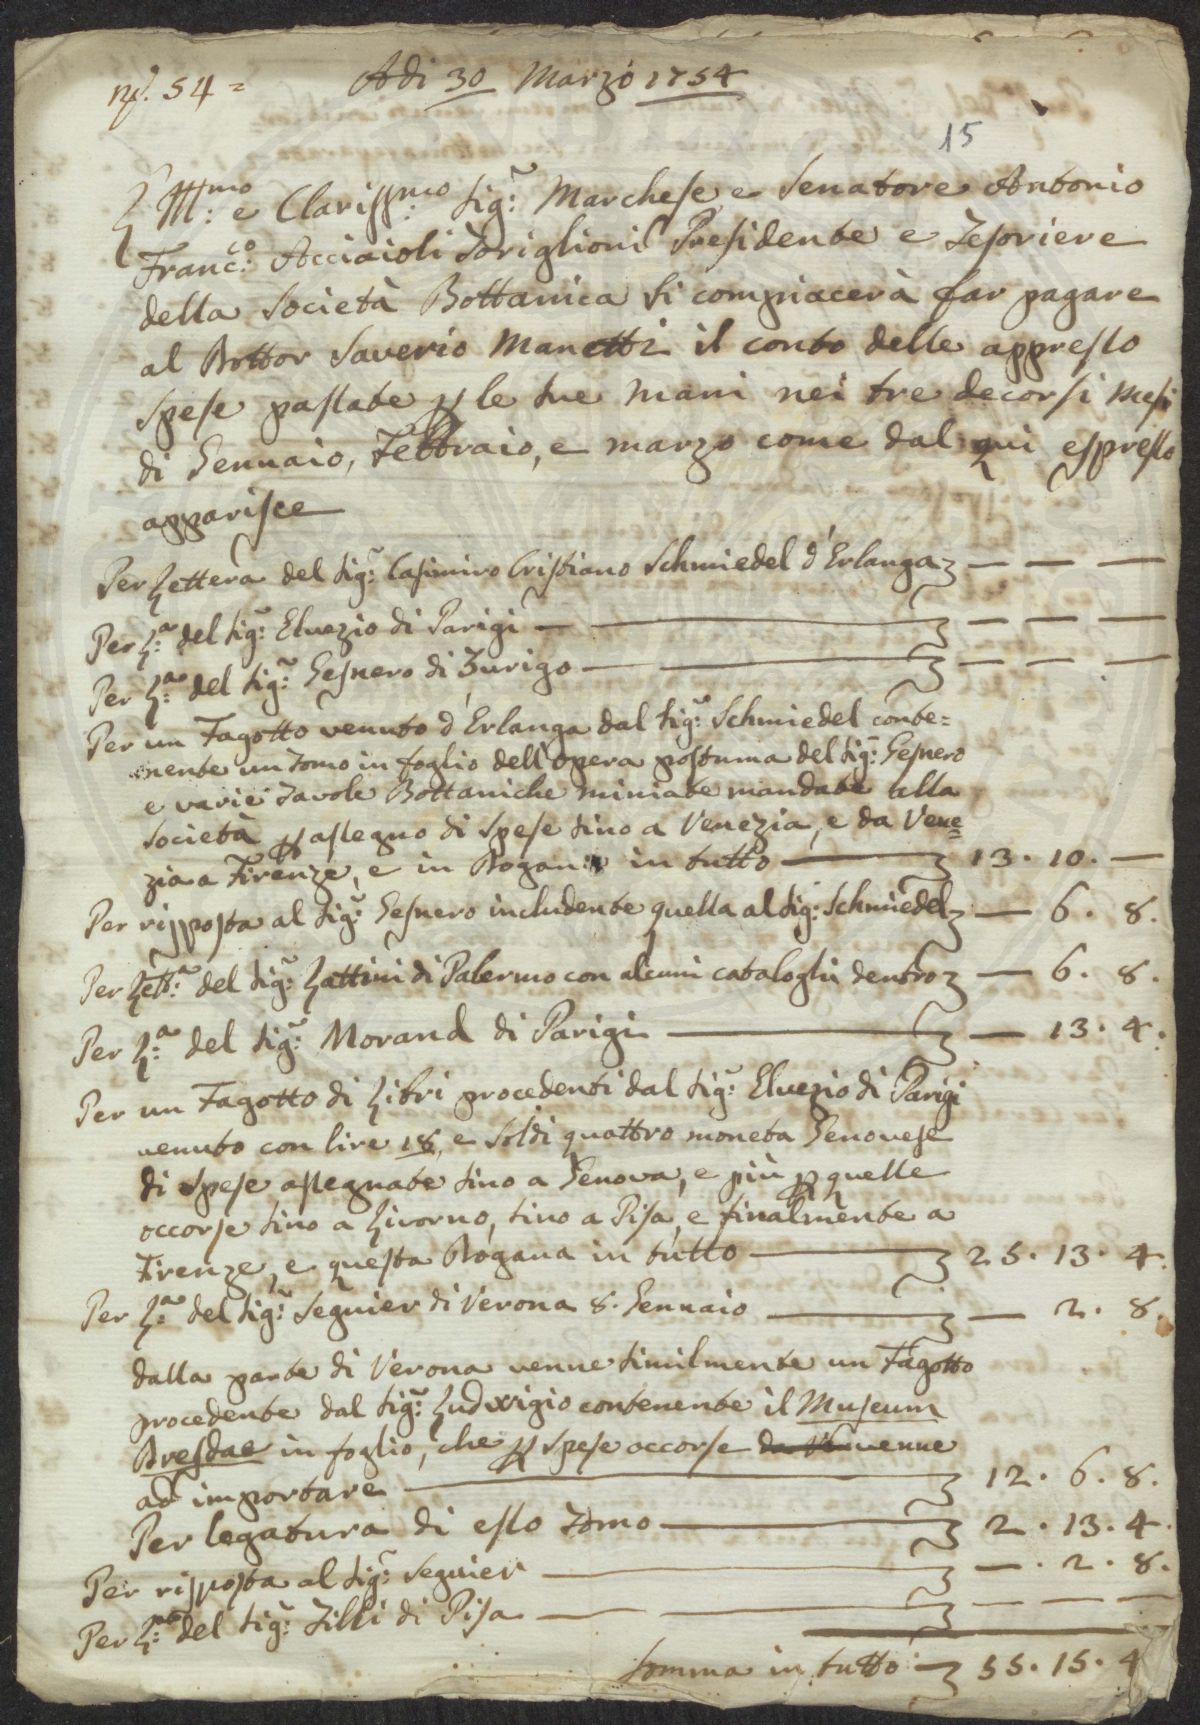 N.º 54 =
Adi 30 Marzo 1754
15
L'Ill:mo e Clariss:mo Sig:r Marchese, e Senatore Antonio
Franc:co Acciaioli Toriglioni Presidente e Tesoriere
della Società Bottanica si compiacerà far pagare
al Dottor Saverio Manetti il conto delle appresso
spese passate p le sue mani nei tre decorsi mesi
di Gennaio, Febbraio, e marzo come dal qui espresso
apparisce
Per Lettera del Sig:r Casimiro Cristiano Schmiedel d'Erlanga — — —
Per L:a del Sig:r Elvezio di Parigi — — — —
Per L:a del Sig:r Gesnero di Zurigo — — — —
Per un Fagotto venuto d'Erlanga dal Sig:r Schmiedel conte=
nente un Tomo in foglio dell'opera postuma del Sig:r Gesnero
e varie Tavole Bottaniche miniate mandate alla
Società p assegno di spese sino a Venezia, e da Vene=
zia a Firenze, e in Dogana in tutto — 13. 10. —
Per risposta al Sig:r Gesnero includente quella al Sig:r Schmiedel — 6. 8.
Per Lett:a del Sig:r Lattini di Palermo con alcuni cataloghi dentro — 6. 8.
Per L:a del Sig:r Morand di Parigi — — 13. 4.
Per un Fagotto di Libri procedenti dal Sig:r Elvezio di Parigi
venuto con lire 18, e soldi quattro moneta Genovese
di spese assegnate sino a Genova, e più p quelle
occorse sino a Livorno, sino a Pisa, e finalmente a
Firenze, e questa Dogana in tutto — 25. 13. 4.
Per L:a del Sig:r Seguier di Verona 8. Gennaio — — 2. 8.
dalla parte di Verona venne similmente un Fagotto
procedente dal Sig:r Ludwigio contenente il Museum
Dresdae in foglio, che p spese occorse venne
ad importare — 12. 6. 8.
Per legatura di esso Tomo — 2. 13. 4.
Per risposta al Sig:r Seguier — —. 2. 8.
Per L:a del Sig:r Tilli di Pisa — — — —
Somma in tutto — 55. 15. 4